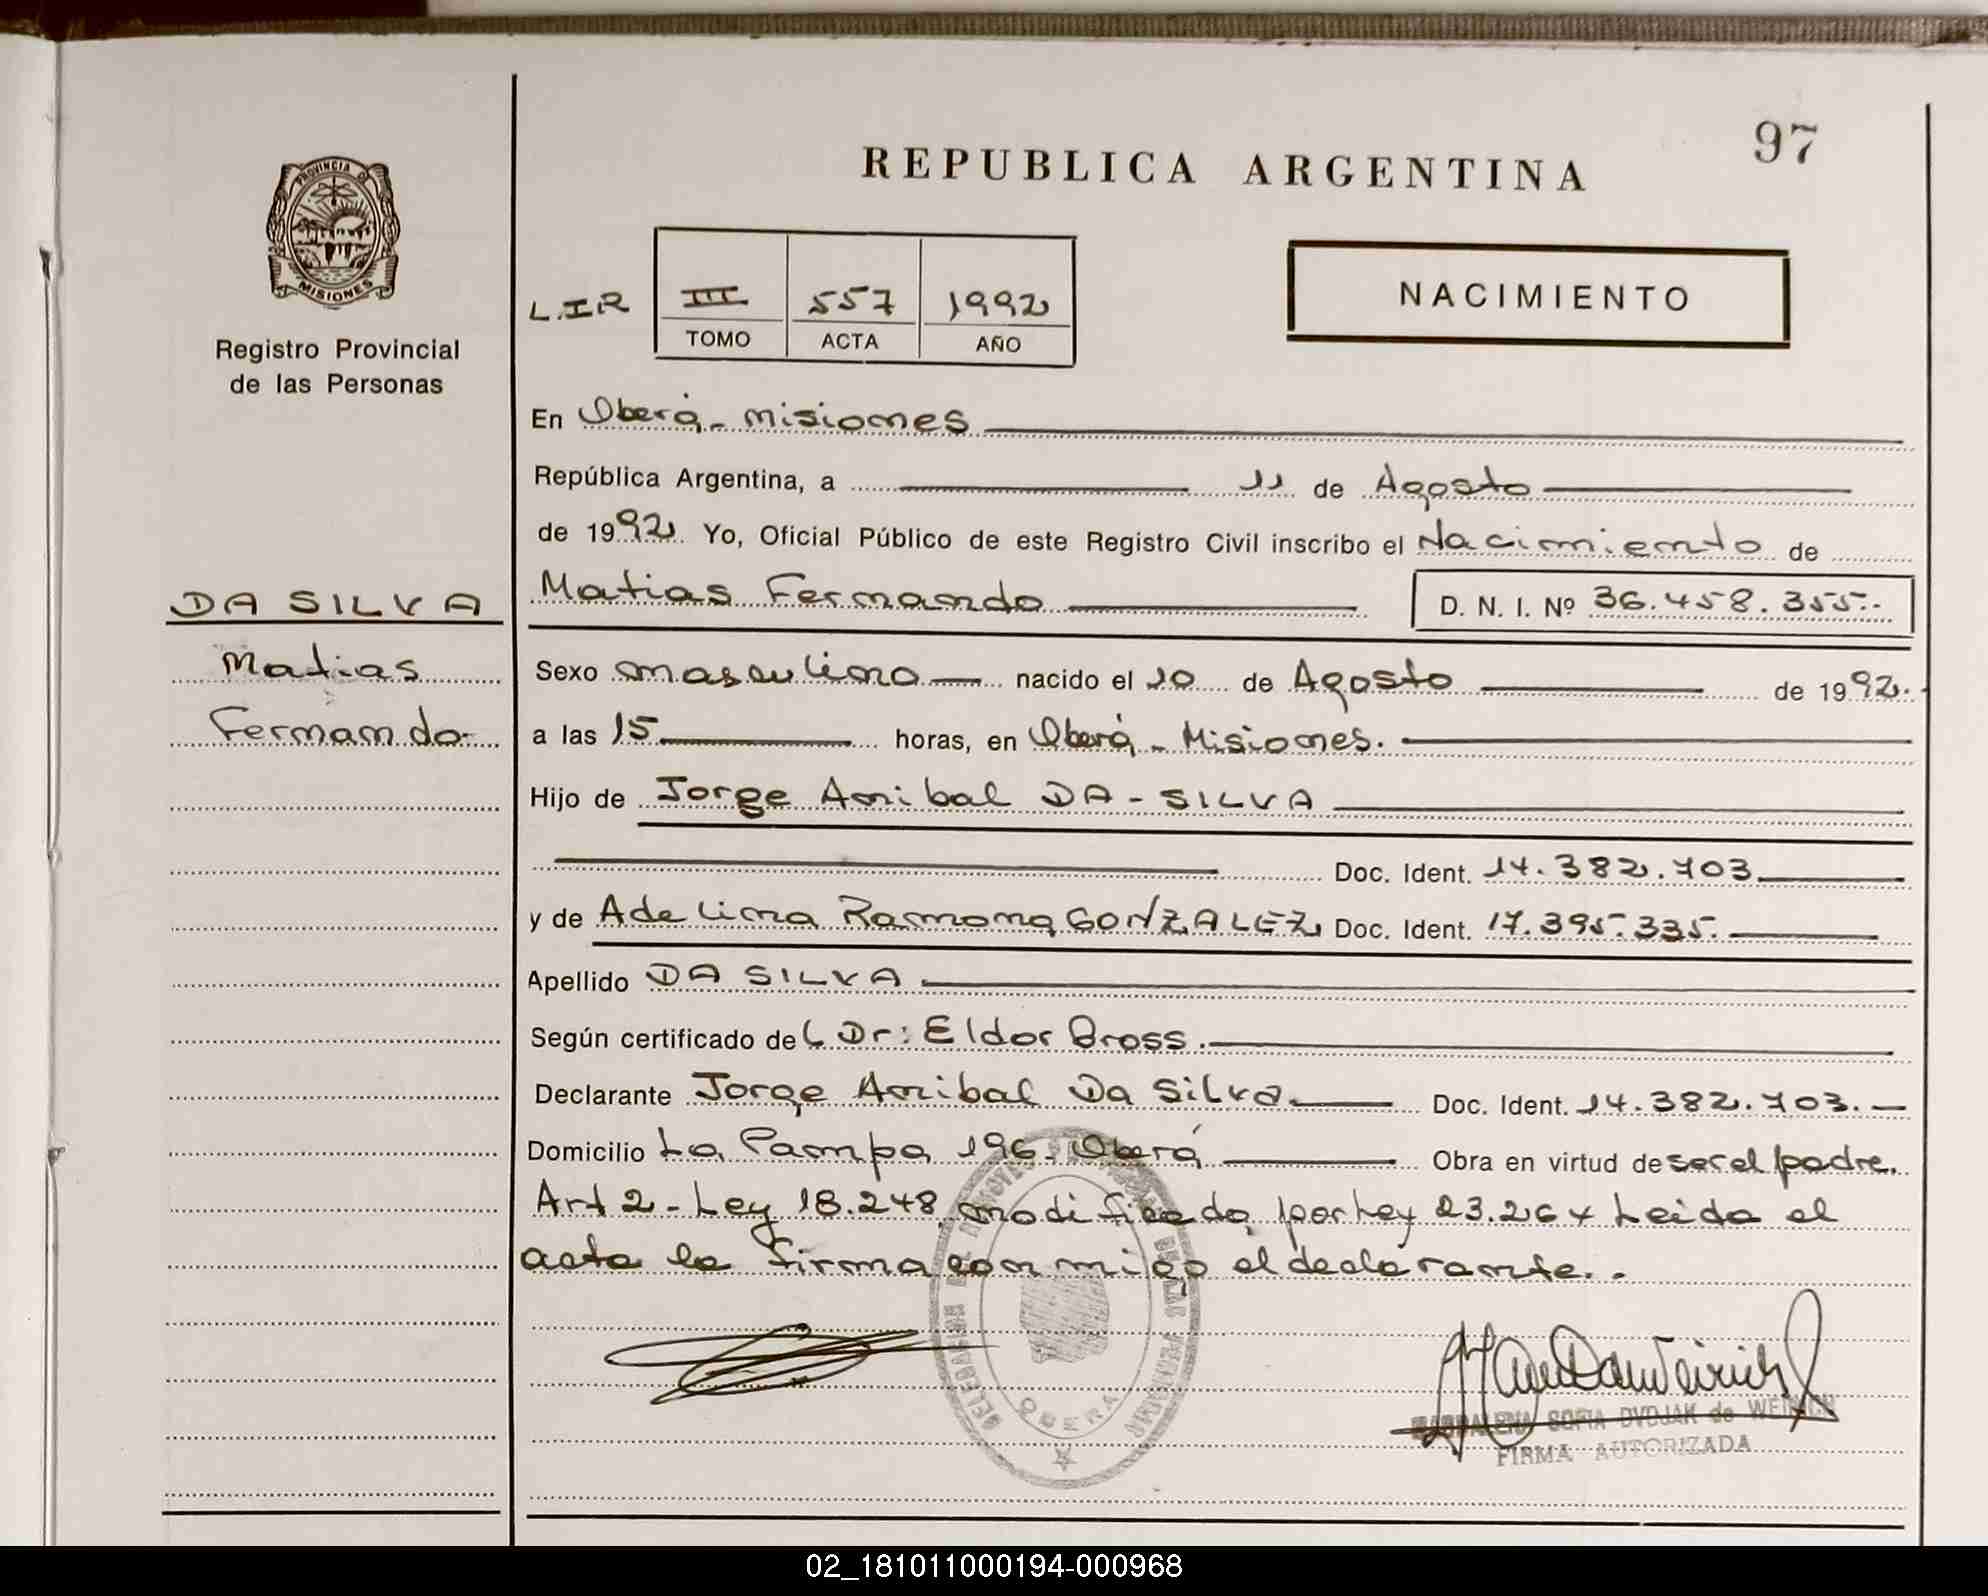 97
REPUBLICA ARGENTINA
PROVINCIA DE
MISIONES
Registro Provincial
de las Personas
NACIMIENTO
L.I R III 557 1992
TOMO ACTA AÑO
En Oberá - Misiones
República Argentina, a 11 de Agosto
de 1992. Yo, Oficial Público de este Registro Civil inscribo el Nacimiento de
DA SILVA
Matias
Fernando
Matias Fernando D. N. I. Nº 36.458.355.-
Sexo masculino nacido el 10 de Agosto de 1992.
a las 15 horas, en Oberá - Misiones.
Hijo de Jorge Anibal DA-SILVA
Doc. Ident. 14.382.703
y de Adelina Ramona GONZALEZ Doc. Ident. 17.395.335.
Apellido DA SILVA
Según certificado del Dr: Eldor Bross.
Declarante Jorge Anibal Da Silva. Doc. Ident. 14.382.703.
Domicilio La Pampa 196. Oberá Obra en virtud de ser el padre.
Art 2 - Ley 18.248, modificado por Ley 23.264 Leida el
acta la firma conmigo el declarante..
OBERA
SOFIA DVDJAK de WEIRICH
FIRMA AUTORIZADA
02_181011000194-000968